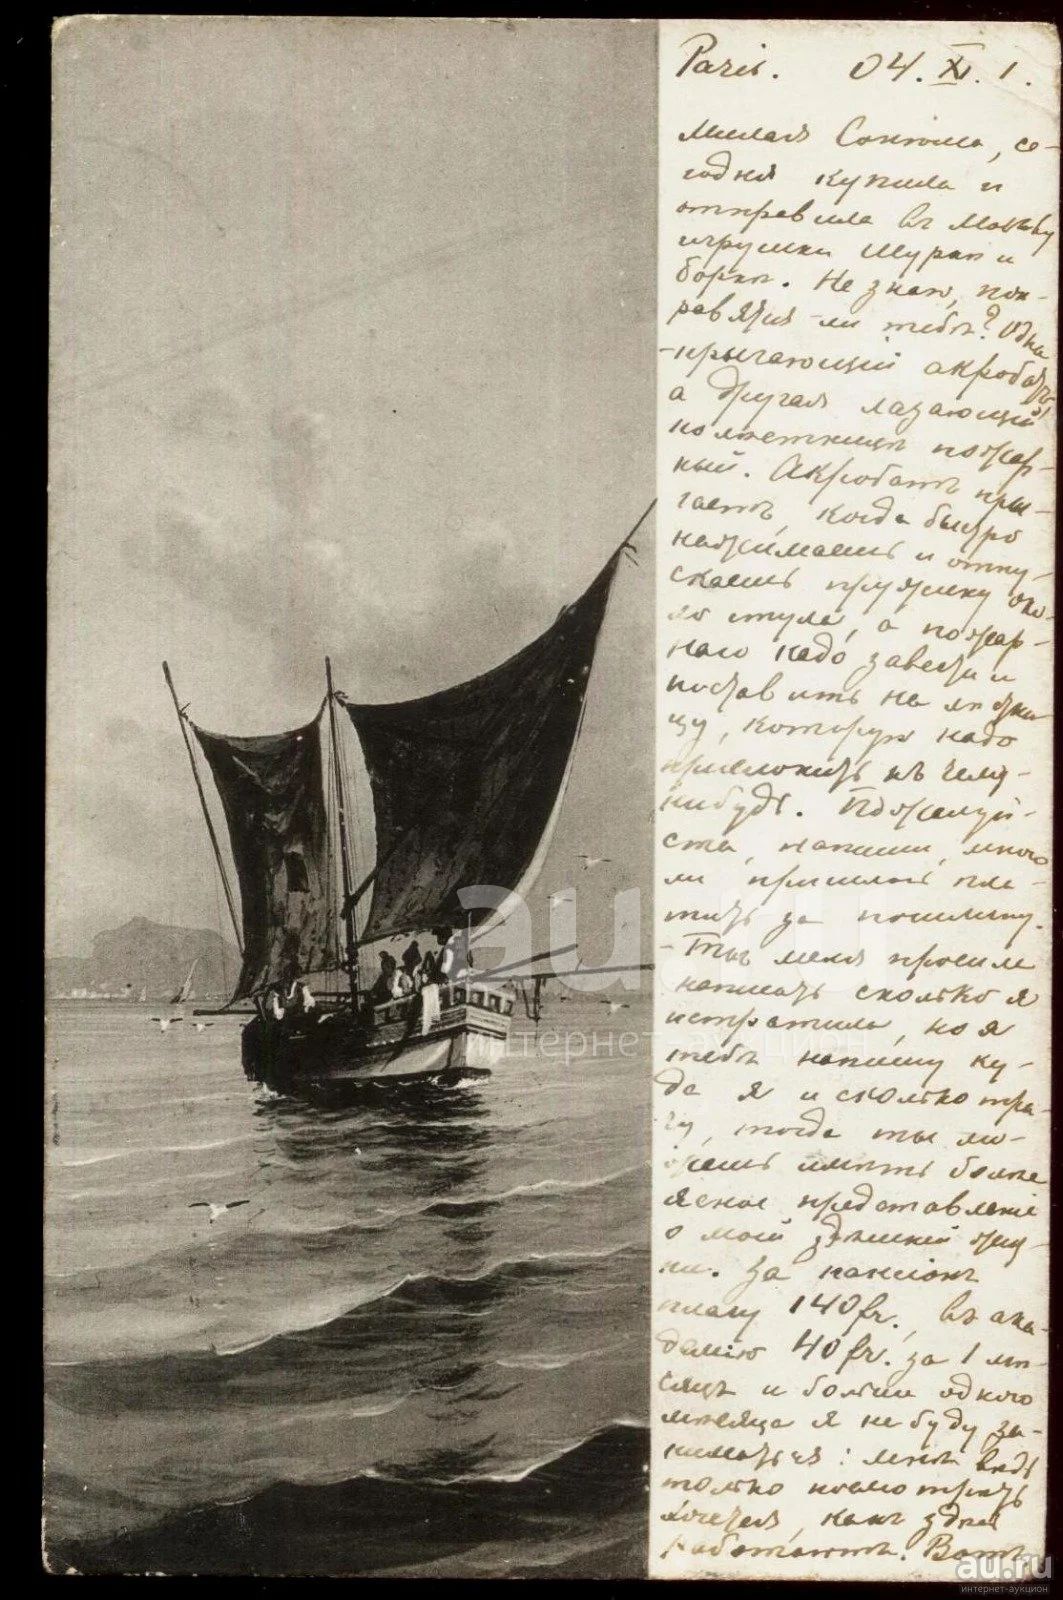 Paris. 04. XI. 1.
Милая Сонюша, се-
годня купила и
отправила въ Москву
игрушки Шурѣ и
Борѣ. Не знаю, пон-
равятся-ли тебѣ? Одна
-прыгающій акробатъ,
а другая лазающій
по лѣстницѣ пожар-
ный. Акробатъ пры-
гаетъ, когда быстро
нажимаешь и отпу-
скаешь пружину око-
ло стула, а пожар-
наго надо завести и
поставить на лѣстни-
цу, которую надо
прислонить къ чему-
нибудь. Пожалуй-
ста, напиши, много
ли пришлось пла-
тить за посылку.
-Ты меня просила
написать сколько я
истратила, но я
тебѣ напишу ку-
да я и сколько тра-
чу, тогда ты мо-
жешь имѣть болѣе
ясное представленіе
о моей здѣшней жиз-
ни. За пансіонъ
плачу 140 fr., въ ака-
демію 40 fr. за 1 мѣ-
сяцъ и больше одного
мѣсяца я не буду за-
ниматься: мнѣ вѣдь
только посмотрѣть
хочется, какъ здѣсь
работаютъ. Вотъ
au.ru
интернет-аукцион
au.ru
интернет-аукцион